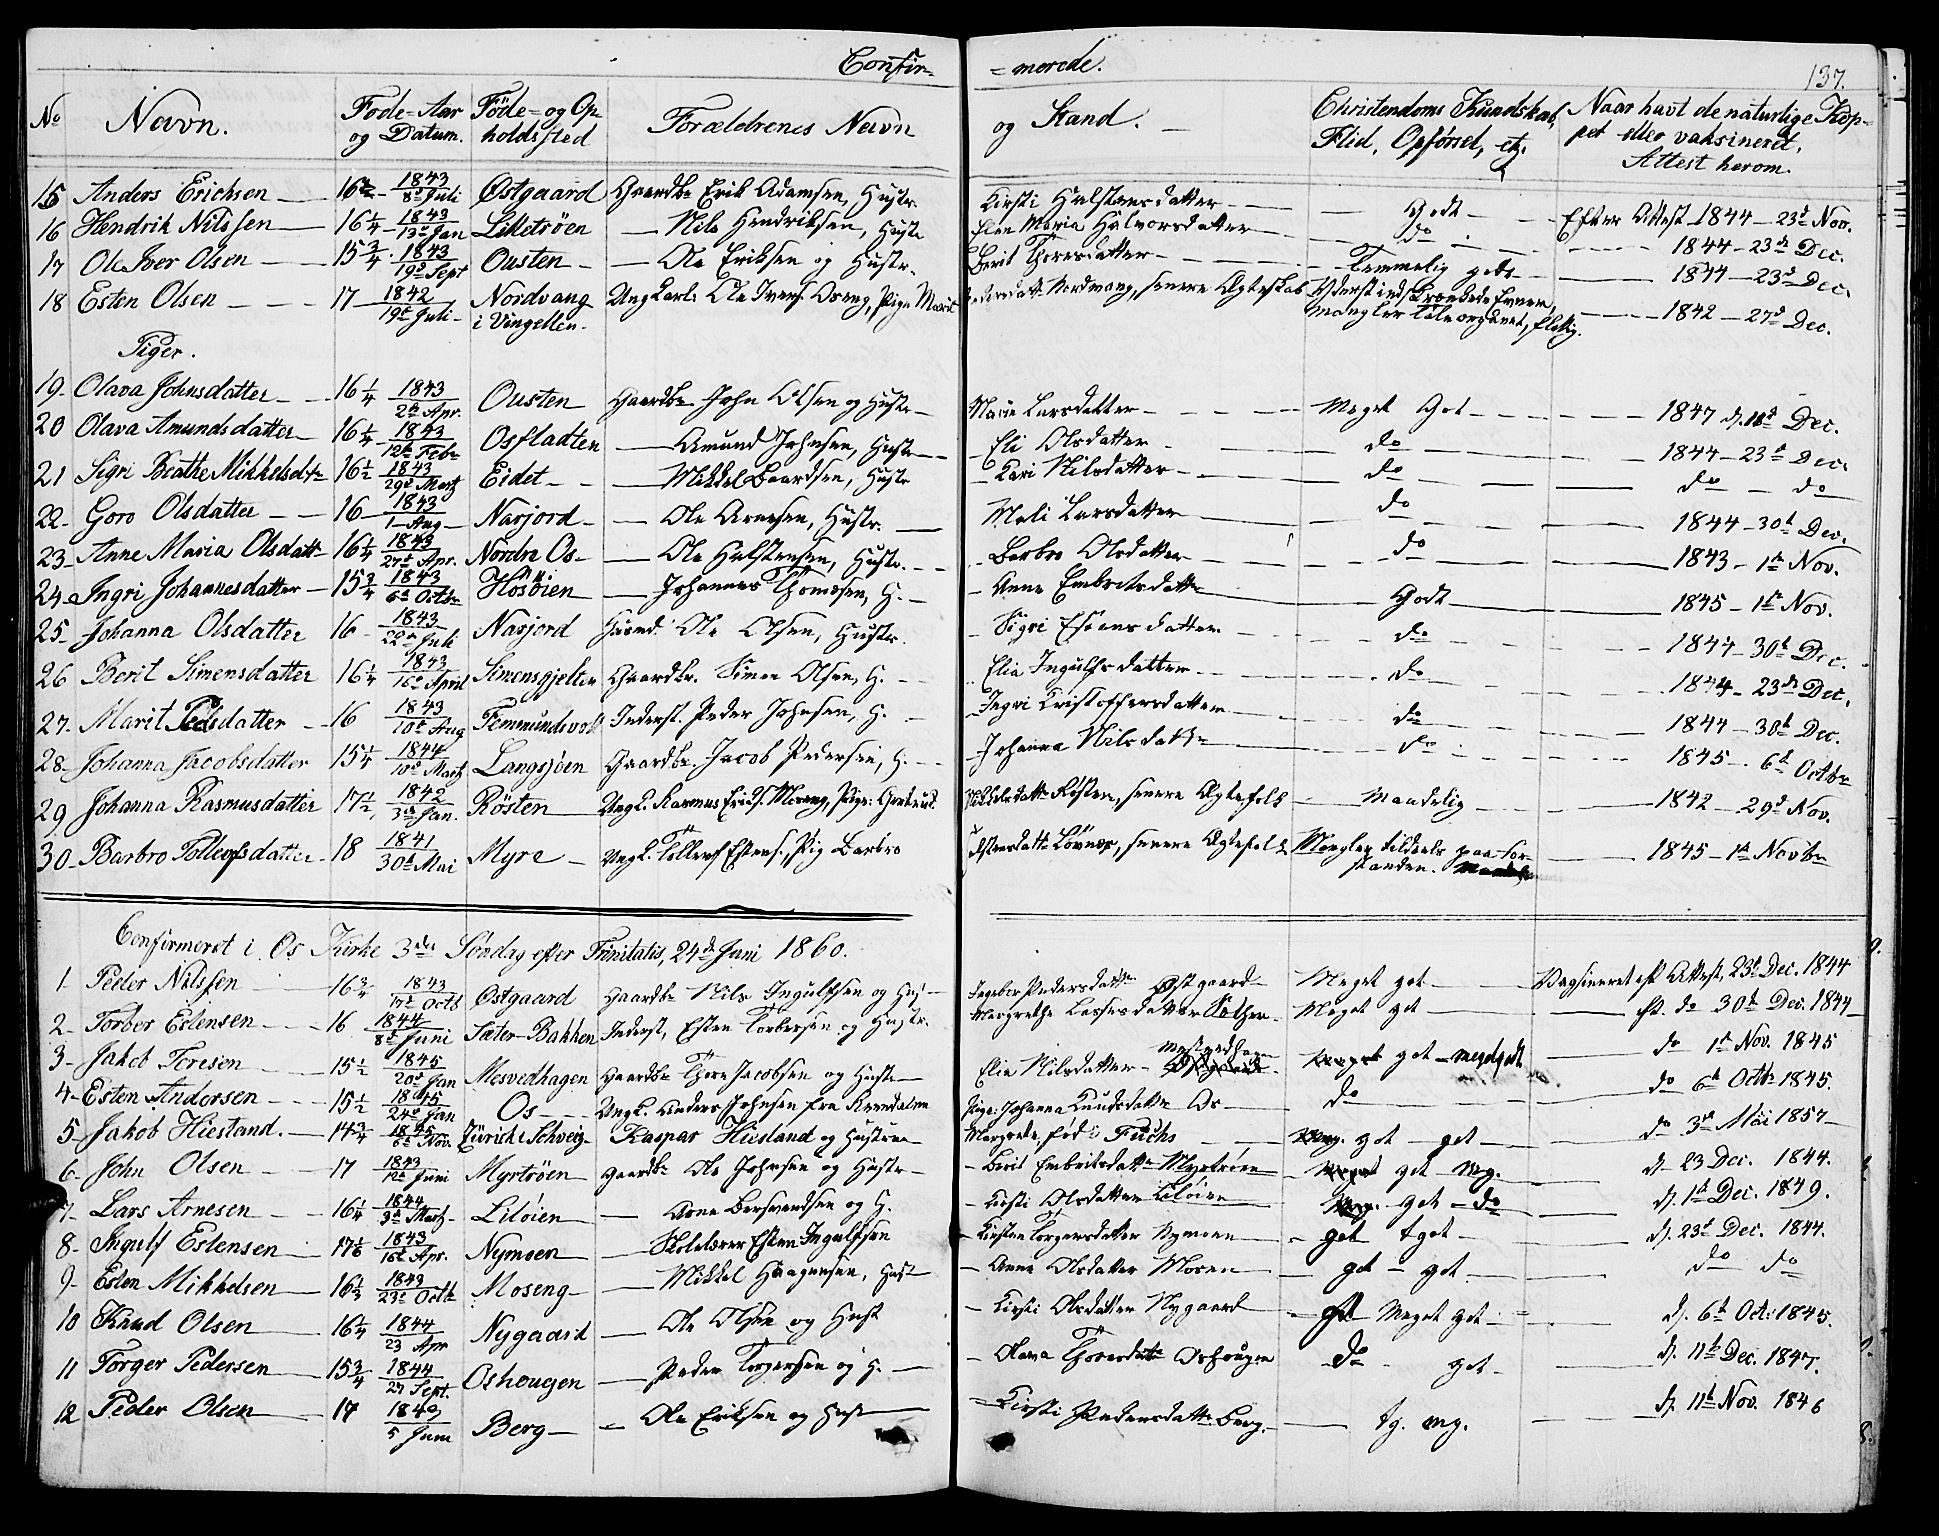 Confir- = merede. 137.
No Navn. Føde-Aar og Datum. Føde- og Opholdssted Forældrenes Navn og Stand. Christendoms Kundskab, Flid, Opførsel, etz. Naar havt de naturlige Koppet eller vaksineret, Attest herom.
15 Anders Erichsen 16 1843 8de Juli Østgaard Gaardbr. Erik Adamsen, Hustr. Kirsti Halstensdatter Godt Efter Attest 1844 - 23de Nov.
16 Hendrik Nilssen 16 1/4 1843 13de Jan Litletrøen — Nils Hendriksen, Hustr. Elen Maria Halvorsdatter do 1844 - 23de Dec.
17 Ole Iver Olsen 15 3/4 1843 19de Sept Ousten — Ole Eriksen og Hustr. Berit Thoresdatter Temmelig godt 1844 - 23de Dec.
18 Esten Olsen 17 1842 19de Juli Nordvang i Vingellen. Ungkarl: Ole Ivers. Oseng, Pige Marit Pedersdatt. Nordvang, senere Ægteskab Yderst indskrænkede Evner, mangler Taleorganet, flittig. 1842 - 27de Dec.
Piger.
19. Olava Johnsdatter 16 1/4 1843 2de Apr. Ousten Gaardbr. John Olsen og Hustr. Marie Larsdatter Meget Got 1847 d. 18de Dec.
20 Olava Amundsdatter 16 1/4 1843 12te Febr Osfladten — Amund Johnsen, Hustr. Eli Olsdatter do 1844 - 23de Dec.
21 Sigri Beathe Mikkelsdtr 16 1/2 1843 29de Martz Eidet — Mikkel Baardsen, Hustr Kari Nilsdatter do do - do
22 Goro Olsdatter 16 1843 1 Aug Narjord — Ole Arnesen, Hustr. Mali Larsdatter do 1844 - 30te Dec.
23 Anne Maria Olsdatt 16 1/4 1843 27de Apr. Nordre Os — Ole Halstensen, Hustr. Barbro Olsdatter do 1843 - 1te Nov.
24 Ingri Johannesdatter 15 3/4 1843 6te Octbr Hösöien — Johannes Thomesen, H. Anne Embretsdattr Godt 1845 - 1te Nov.
25 Johanna Olsdatter 16 1843 22de Juli Narjord Husmd. Ole Olsen, Hustr. Sigri Esvensdatter do 1844 - 30te Dec.
26 Berit Simensdatter 16 1/4 1843 16de April Simensgjelten Gaardbr. Simen Olsen, H. Elie Ingulfsdatter do 1844 - 23de Dec.
27 Marit Pedsdatter 16 1843 10de Aug Femmundsvold Inderst. Peder Johnsen, H. Ingri Kristoffersdatter do 1844 - 30te Dec.
28 Johanna Jacobsdatter 15 1/4 1844 10de Martz Langsjöen Gaardbr. Jacob Pedersen, H. Johanna Nilsdattr do 1845 - 6te Octbr
29 Johanna Rasmusdatter 17 1/2 1842 3de Jan. Rösten Ungk. Rasmus Erichs. Moseng, Pige: Gertrud Mikkelsdattr Røsten, senere Ægtefolk Maadelig 1842 - 29de Nov.
30 Barbro Tollefsdatter 18 1841 30te Mai Myre Ungk. Tollef Estens., Pig Barbro Estensdattr Lövnes, senere Ægtefolk Mangler tildeels paa Forstanden. 1845 - 1te Novbr
Confirmeret i Os Kirke 3die Söndag efter Trinitatis, 24de Juni 1860.
1 Peder Nilssen 16 3/4 1843 17de Octb Østgaard Gaardbr Nils Ingulfsen og Hust Ingebor Pedersdattr Østgaard Meget got Vagsineret eft Attest, 23de Dec. 1844
2 Torber Estensen 16 1844 8de Juni Sæter-Bakken Inderst, Esten Torbersen og Hustr. Margrethe Lassesdatter Sæther Meget got eft. do 30te Dec. 1844
3 Jakob Toresen 15 1/2 1845 20de Jan Mesvedhagen Gaardbr Thore Jacobsen og Hustr Elie Nilsdatter Mesvedhagen got - megetgodt do 1te Nov. 1845
4 Esten Andersen 15 1/2 1845 24de Jan Os Ungk. Anders Johnsen fra Kvendalen Pige: Johanna Knudsdatter Os do do 6te Octbr 1845.
5 Jakob Hiestand. 14 3/4 1845 6te Nov. Zürich i Schveig Kaspar Hiestand og Hustrue Margrete, født Fuchs got - got do 3de Mai 1857
6 John Olsen 17 1843 12te Juni Myrtröen Gaardbr Ole Johnsen og Hustr Berit Embretsdattr Myrtröen got Meg. d. 23 Dec. 1844.
7 Lars Arnesen 16 1/4 1844 3de Martz Lilöien — Arne Bersvendsen og H. Kirsti Olsdatter Lilöien got - do d. 1te Dec. 1849.
8 Ingulf Estensen 17 1/6 1843 16de Apr. Nymoen — Skolelærer Esten Ingulfsen Kirsten Torgersdatter Nymoen got tgot d. 23de Dec. 1844.
9 Esten Mikkelsen 16 2/3 1843 23de Octb Moseng — Mikkel Haagensen, Hust Anne Olsdatter Mosen got - got do do
10 Knud Olsen 16 1/4 1844 23 Apr Nygaard — Ole Olsen og Hust Kirsti Olsdatter Nygaard got Meget got d. 6te Oct: 1845.
11 Torger Pedersen 15 3/4 1844 27 Sept. Oshougen — Peder Torgersen og H. Olava Thoresdatt Oshougen do got d. 11te Dec. 1847.
12 Peder Olsen 17 1843 5 Juni Berg — Ole Eriksen og Hust Kirsti Pedersdattr Berg. tg. mg. d. 11te Nov. 1846